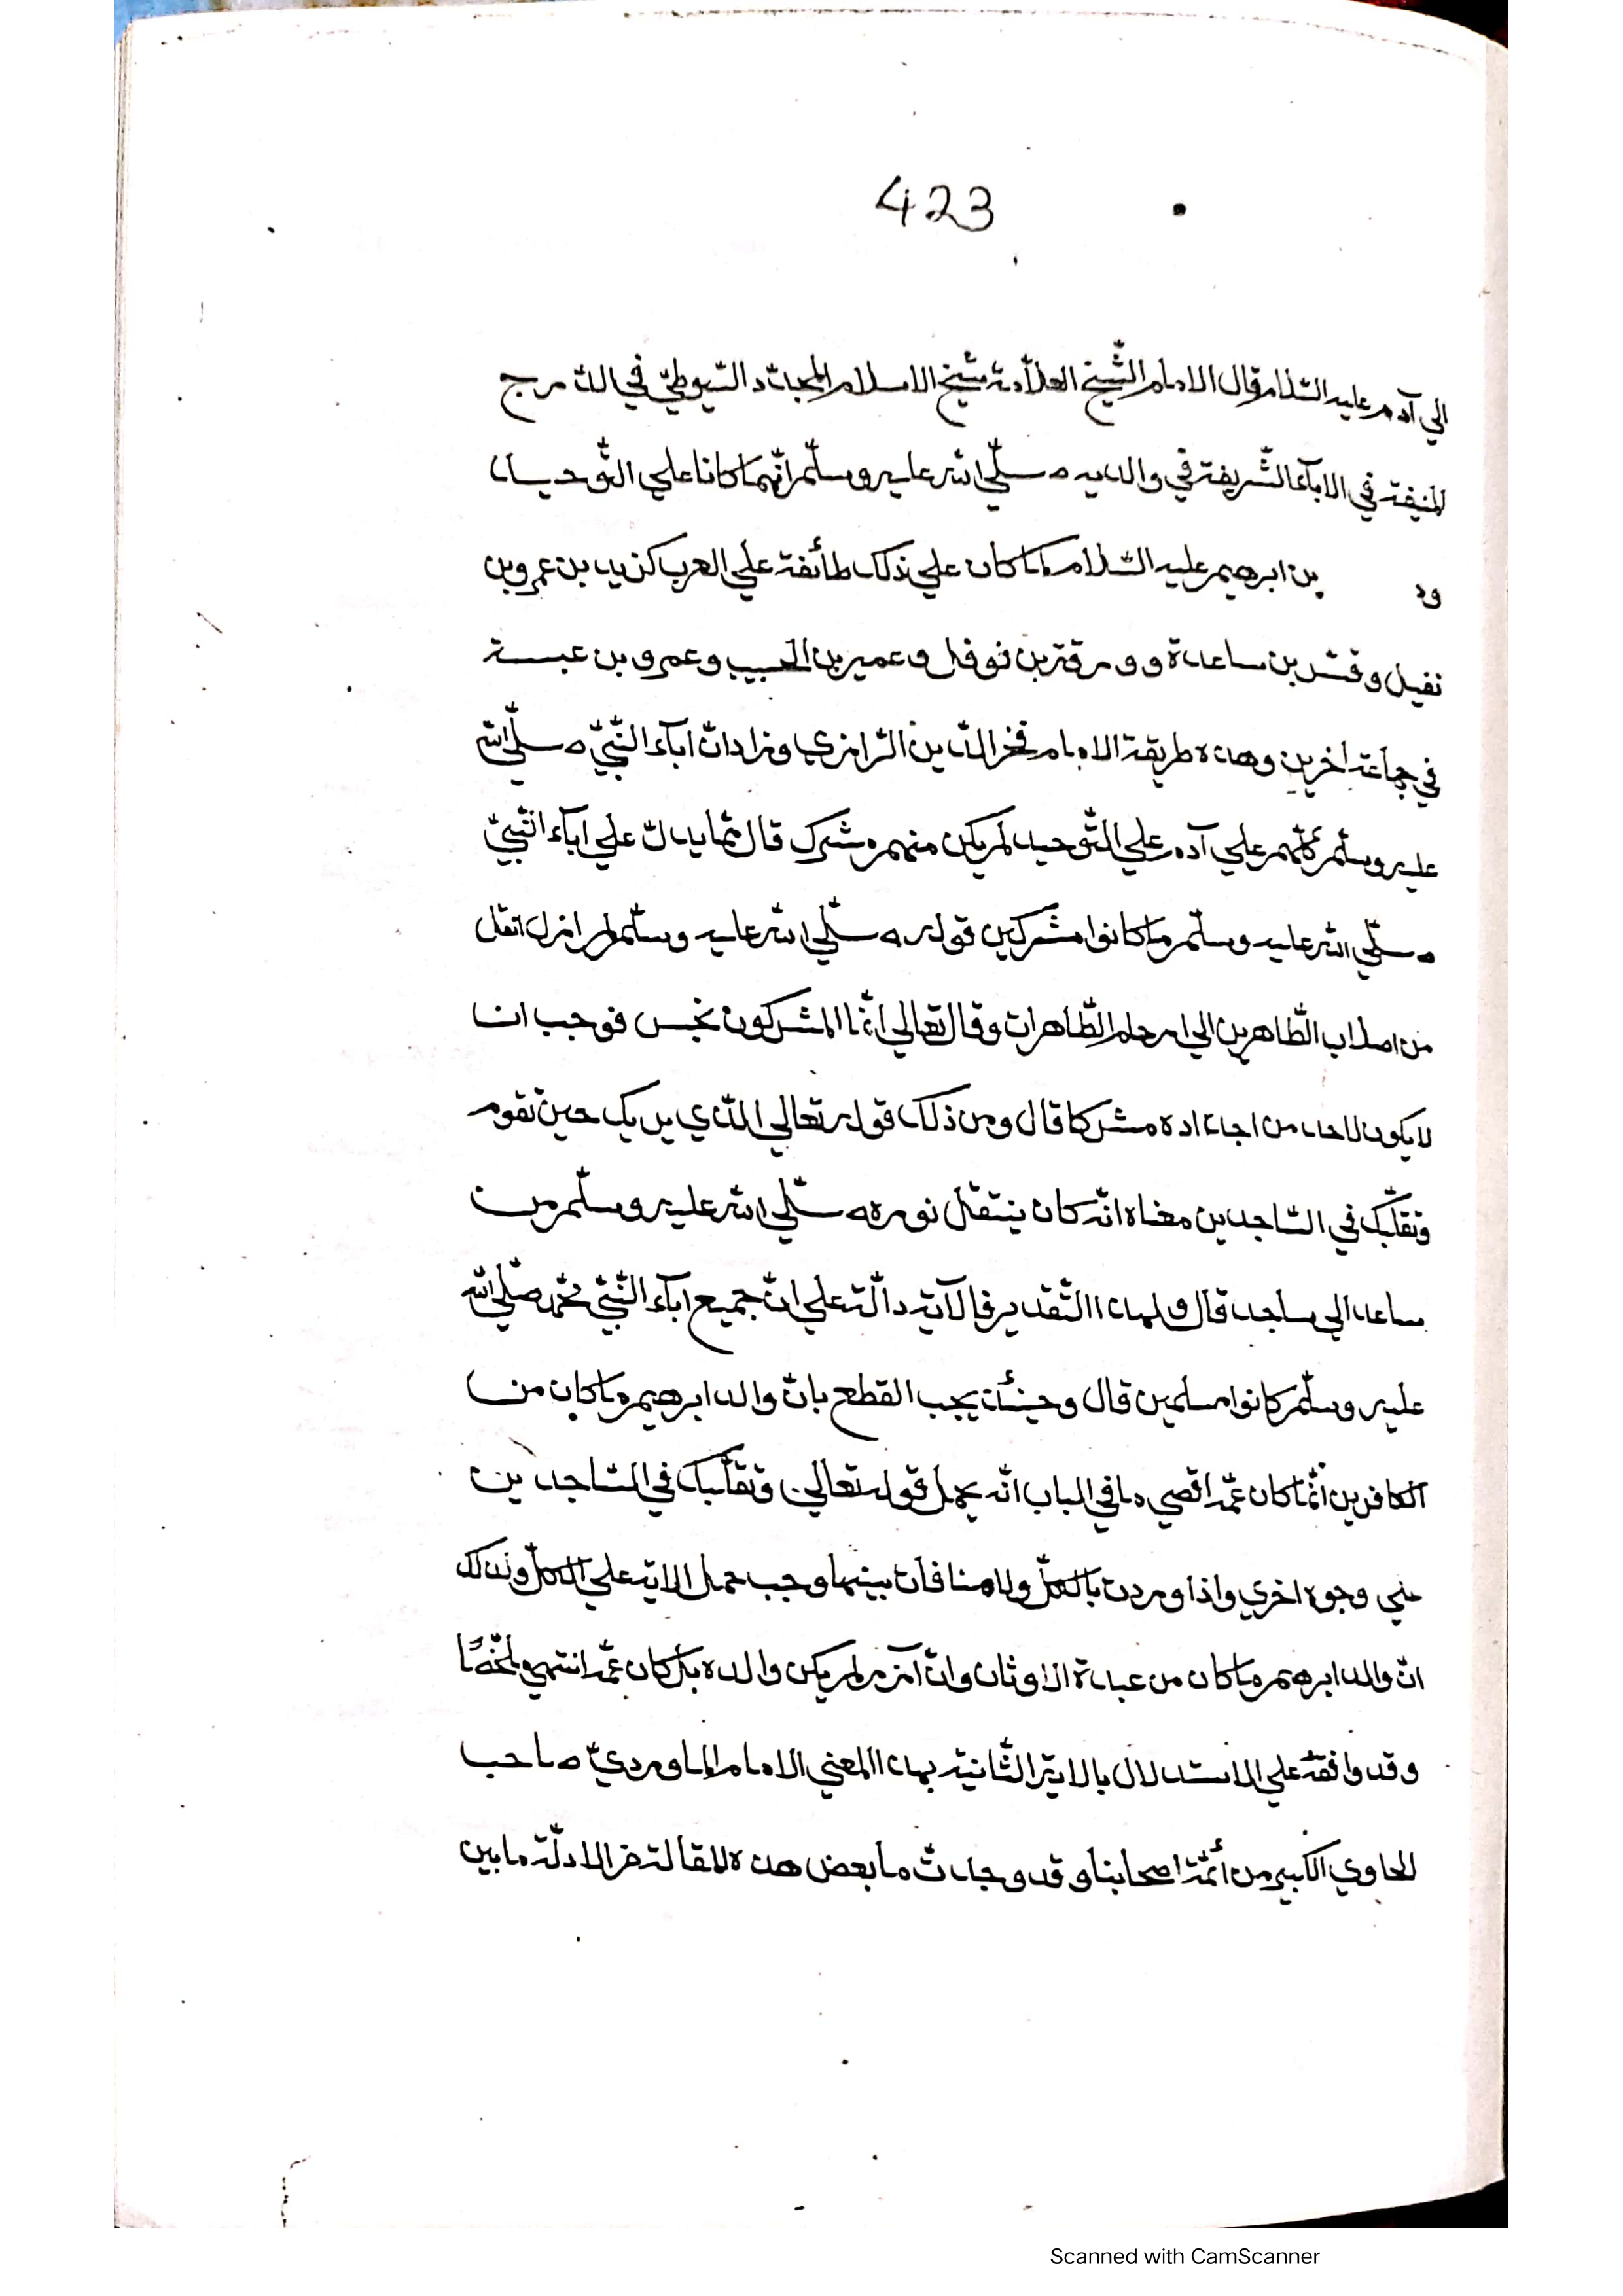 423
الي آدم عليه السّلام قال الامام الشّيخ العلاّمة شيخ الاسلام المجدّد السّيوطيّ في الدّرج
المنيفة في الابآء الشّريفة في والديه صلّي الله عليه وسلّم انّهما كانا علي التّوحيد
ود بن ابرهيم عليه السّلام كما كان علي ذلك طائفة علي العرب كزيد بن عمرو بن
نفيل وقسّ بن ساعدة وورقة بن نوفل وعمير بن الحبيب وعمرو بن عبسة
في جماعة اخرين وهذه طريقة الامام فخر الدّين الرّازي وزاد انّ ابآء النّبيّ صلّي الله
عليه وسلّم كلّهم علي آدم علي التّوحيد لم يكن منهم مشرك قال ممّا يدلّ علي ابآء النّبيّ
صلّي الله عليه وسلّم ما كانوا مشركين قوله صلّي الله عليه وسلّم لم ازل انقل
من اصلاب الطّاهرين الي ارحام الطّاهرات وقال تعالي انّما المشركون نجس فوجب ان
لا يكون لاحد من اجداده مشركا قال ومن ذلك قوله تعالي الّذي يريك حين تقوم
وتقلّبك في السّاجدين معناه انّه كان ينتقل نوره صلّي الله عليه وسلّم من
ساعد الي ساجد قال ولهذا التّقدير فالآية دالّة علي انّ جميع ابآء النّبيّ محّمد صلّي الله
عليه وسلّم كانوا مسلمين قال وحينئذ يجب القطع بانّ والد ابرهيم ما كان من
الكافرين انّما كان عمّه اقصي ما في الباب انّه يحمل قوله تعالي وتقلّبك في السّاجدين
علي وجوه اخري واذا وردت بالكلّ ولا منافات بينهما وجب حمل الاية علي الكلّ وكذلك
انّ والد ابرهيم ما كان من عبدة الاوثان وانّ آزر لم يكن والده بل كان عمّه انتهي ملخّصًا
وقد وافقه علي الاستدلال بالاية الثّانية بهذا المعني الامام الماورديّ صاحب
الحاوي الكبير من أئمّة اصحابنا وقد وجدتّ ما بعض هذه المقالة من الادلّة ما بين
Scanned with CamScanner